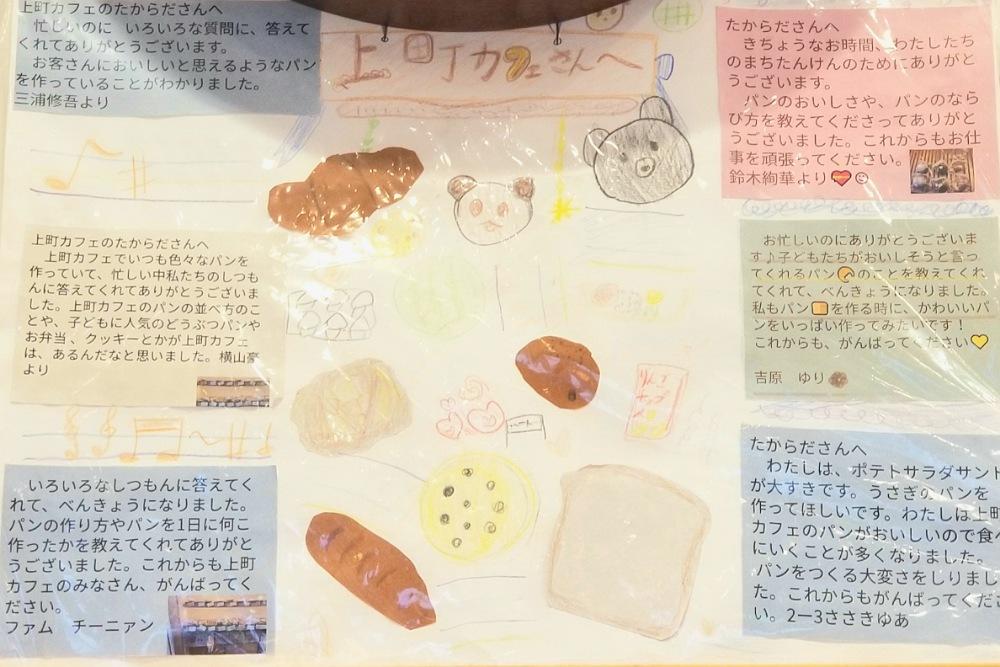 上町カフェのたからださんへ
忙しいのに いろいろな質問に、答えて
くれてありがとうございます。
お客さんにおいしいと思えるようなパン
を作っていることがわかりました。
三浦修吾より
上町カフェさんへ
たからださんへ
きちょうなお時間、わたしたち
のまちたんけんのためにありがと
うございます。
パンのおいしさや、パンのなら
び方を教えてくださってありがと
うございました。これからもお仕
事を頑張ってください。
鈴木絢華より
上町カフェのたからださんへ
上町カフェでいつも色々なパンを
作っていて、忙しい中私たちのしつも
んに答えてくれてありがとうございま
した。上町カフェのパンの並べ方のこ
とや、子どもに人気のどうぶつパンや
お弁当、クッキーとかが上町カフェ
は、あるんだなと思いました。横山豪
より
お忙しいのにありがとうございま
す♪子どもたちがおいしそうと言っ
てくれるパンのことを教えてくれ
てくれて、べんきょうになりました。
私もパンを作る時に、かわいいパ
ンをいっぱい作ってみたいです！
これからも、がんばってください
吉原 ゆり
いろいろなしつもんに答えてく
れて、べんきょうになりました。
パンの作り方やパンを1日に何こ
作ったかを教えてくれてありがと
うございました。これからも上町
カフェのみなさん、がんばってく
ださい。
ファム チーニアン
たからださんへ
わたしは、ポテトサラダサンド
が大すきです。うさぎのパンを
作ってほしいです。わたしは上町
カフェのパンがおいしいので食べ
にいくことが多くなりました。
パンをつくる大変さをじりまし
た。これからもがんばってくださ
い。2ー3ささきゆあ